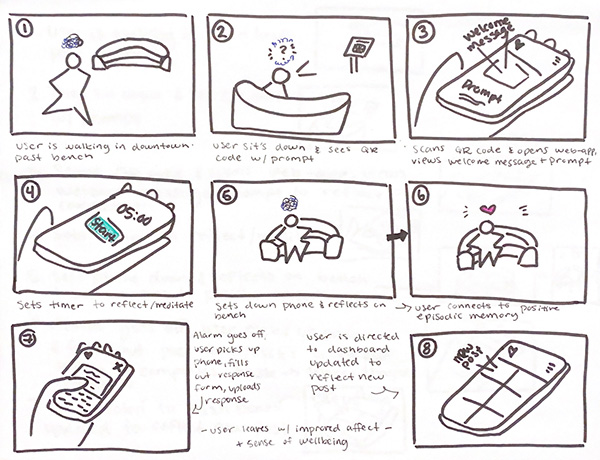 1
2
?
3
WELCOME
MESSAGE
Prompt
user is walking in downtown
past bench
user sit's down & sees QR
code w/ prompt
Scans QR code & opens web-app,
views welcome message + prompt
4
05:00
Start
5
6
Sets timer to reflect/meditate
Sets down phone & reflects on
bench
user connects to positive
episodic memory
7
X
Alarm goes off,
user picks up
phone, fills
out response
form, uploads
response
user is directed
to dashboard
updated to
reflect new
post
8
new
post
- user leaves w/ improved affect -
+ sense of wellbeing